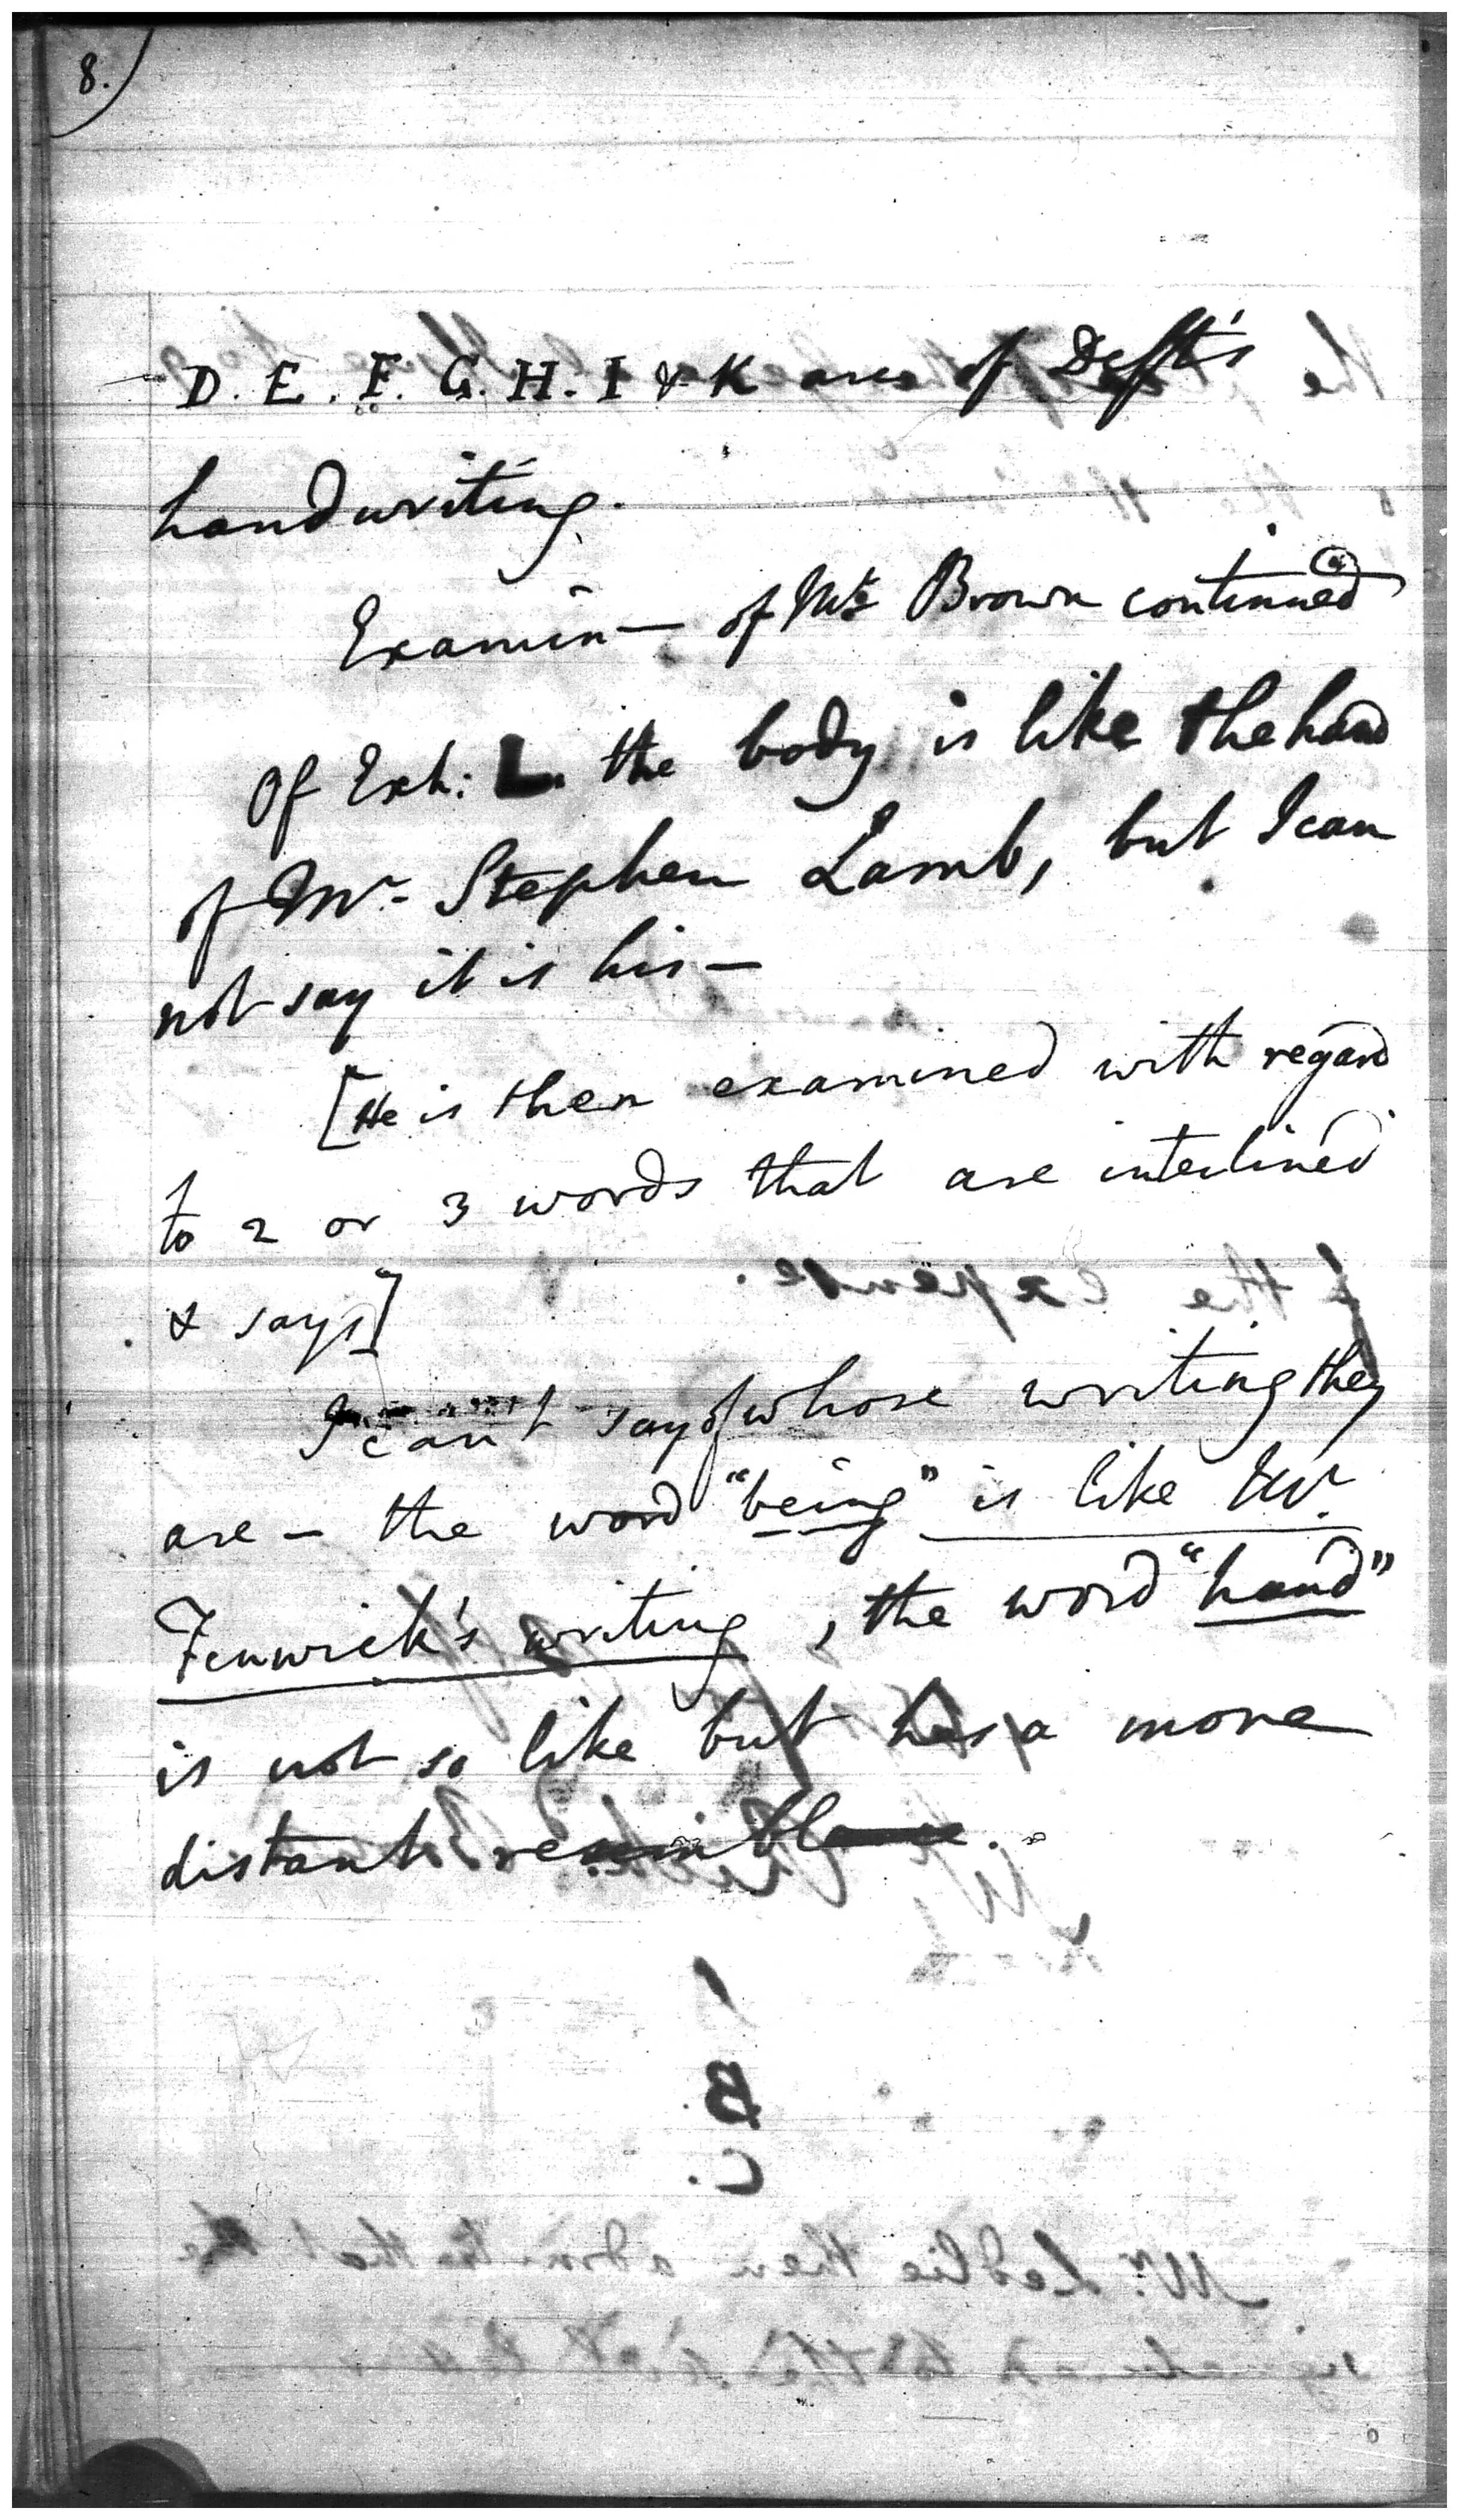 8.)
D. E. F. G. H. I & K are of Deft's
handwriting.
Examin— of Mr Brown continued
Of Exh: L. the body is like the hand
of Mr. Stephen Lamb, but I can
not say it is his—
[He is then examined with regard
to 2 or 3 words that are interlined
& says]
I can't say of whose writing they
are — the word "being" is like Mr.
Fenwick's writing, the word "hand"
is not so like but has a more
distant resemblance.